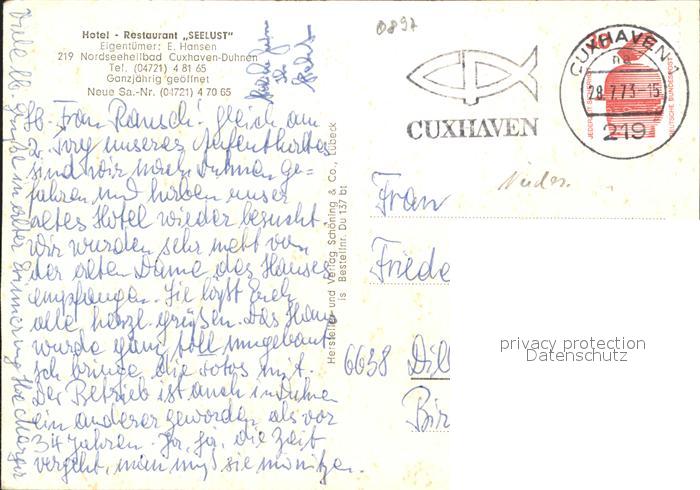 Hotel - Restaurant „SEELUST"
Eigentümer: E. Hansen
219 Nordseeheilbad Cuxhaven-Duhnen
Tel. (04721) 4 81 65
Ganzjährig geöffnet
Neue Sa.-Nr. (04721) 4 70 65
0897
CUXHAVEN
CUXHAVEN 1
28.7.73-15
219
DEUTSCHE BUNDESPOST
lb. Frau Rausch! Gleich am
2. Tag unseres Aufenthaltes
sind wir nach Duhnen ge=
fahren und haben unser
altes Hotel wieder besucht.
Wir wurden sehr nett von
der alten Dame des Hauses
empfangen. Sie läßt Euch
alle herzl. grüßen. Das Haus
wurde ganz toll umgebaut
ich bringe die Fotos mit.
Der Betrieb ist auch in Duhnen
ein anderer geworden als vor
3-4 Jahren. Ja, ja, die Zeit
vergeht, man muß sie nützen.
Viele lb. Grüße in alter Erinnerung
Hersteller und Verlag Schöning & Co., Lübeck
Bestellnr. Du 137 bt
Frau
Friede
6638 Dill
privacy protection
Datenschutz